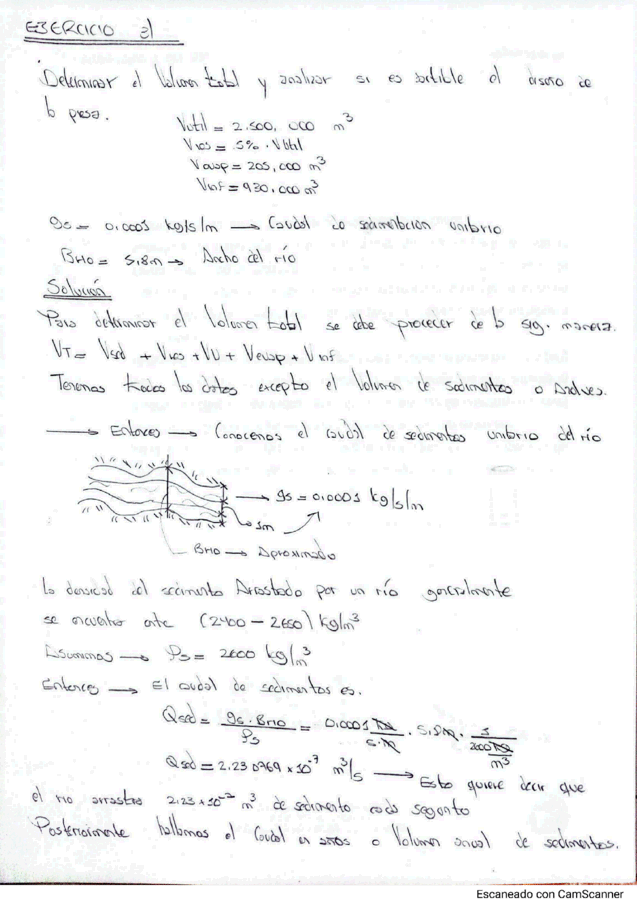 EJERCICIO 3)
Determinar el Volumen total y analizar si es factible el diseño de
la presa.
Vutil = 2.500,000 m³
Vios = 5% . Vutil
Vevap = 205,000 m³
Vinf = 930,000 m³
gs = 0,0001 kg/s/m → Caudal de sedimentación unitario
BRIO = 5,8m → Ancho del río
Solución
Para determinar el Volumen total se debe proceder de la sig. manera.
VT = Vsed + Vios + VU + Vevap + Vinf
Tenemos todos los datos excepto el Volumen de Sedimentos o Azolves.
→ Entonces → Conocemos el caudal de sedimentos unitario del río
→ gs = 0,0001 kg/s/m
1m
BRIO → Aproximado
La densidad del sedimento Arrastrado por un río generalmente
se encuentra entre (2400 - 2650) kg/m³
Asumimos → ρs = 2600 kg/m³
Entonces → El caudal de sedimentos es.
Qsed = gs . BRIO / ρs = 0,0001 kg / s.m . 5,8m . 1 / 2600 kg / m³
Qsed = 2,230769 x 10⁻⁷ m³/s → Esto quiere decir que
el rio arrastra 2,23 x 10⁻⁷ m³ de sedimento cada segundo
Posteriormente hallamos el Caudal en años o Volumen anual de sedimentos.
Escaneado con CamScanner